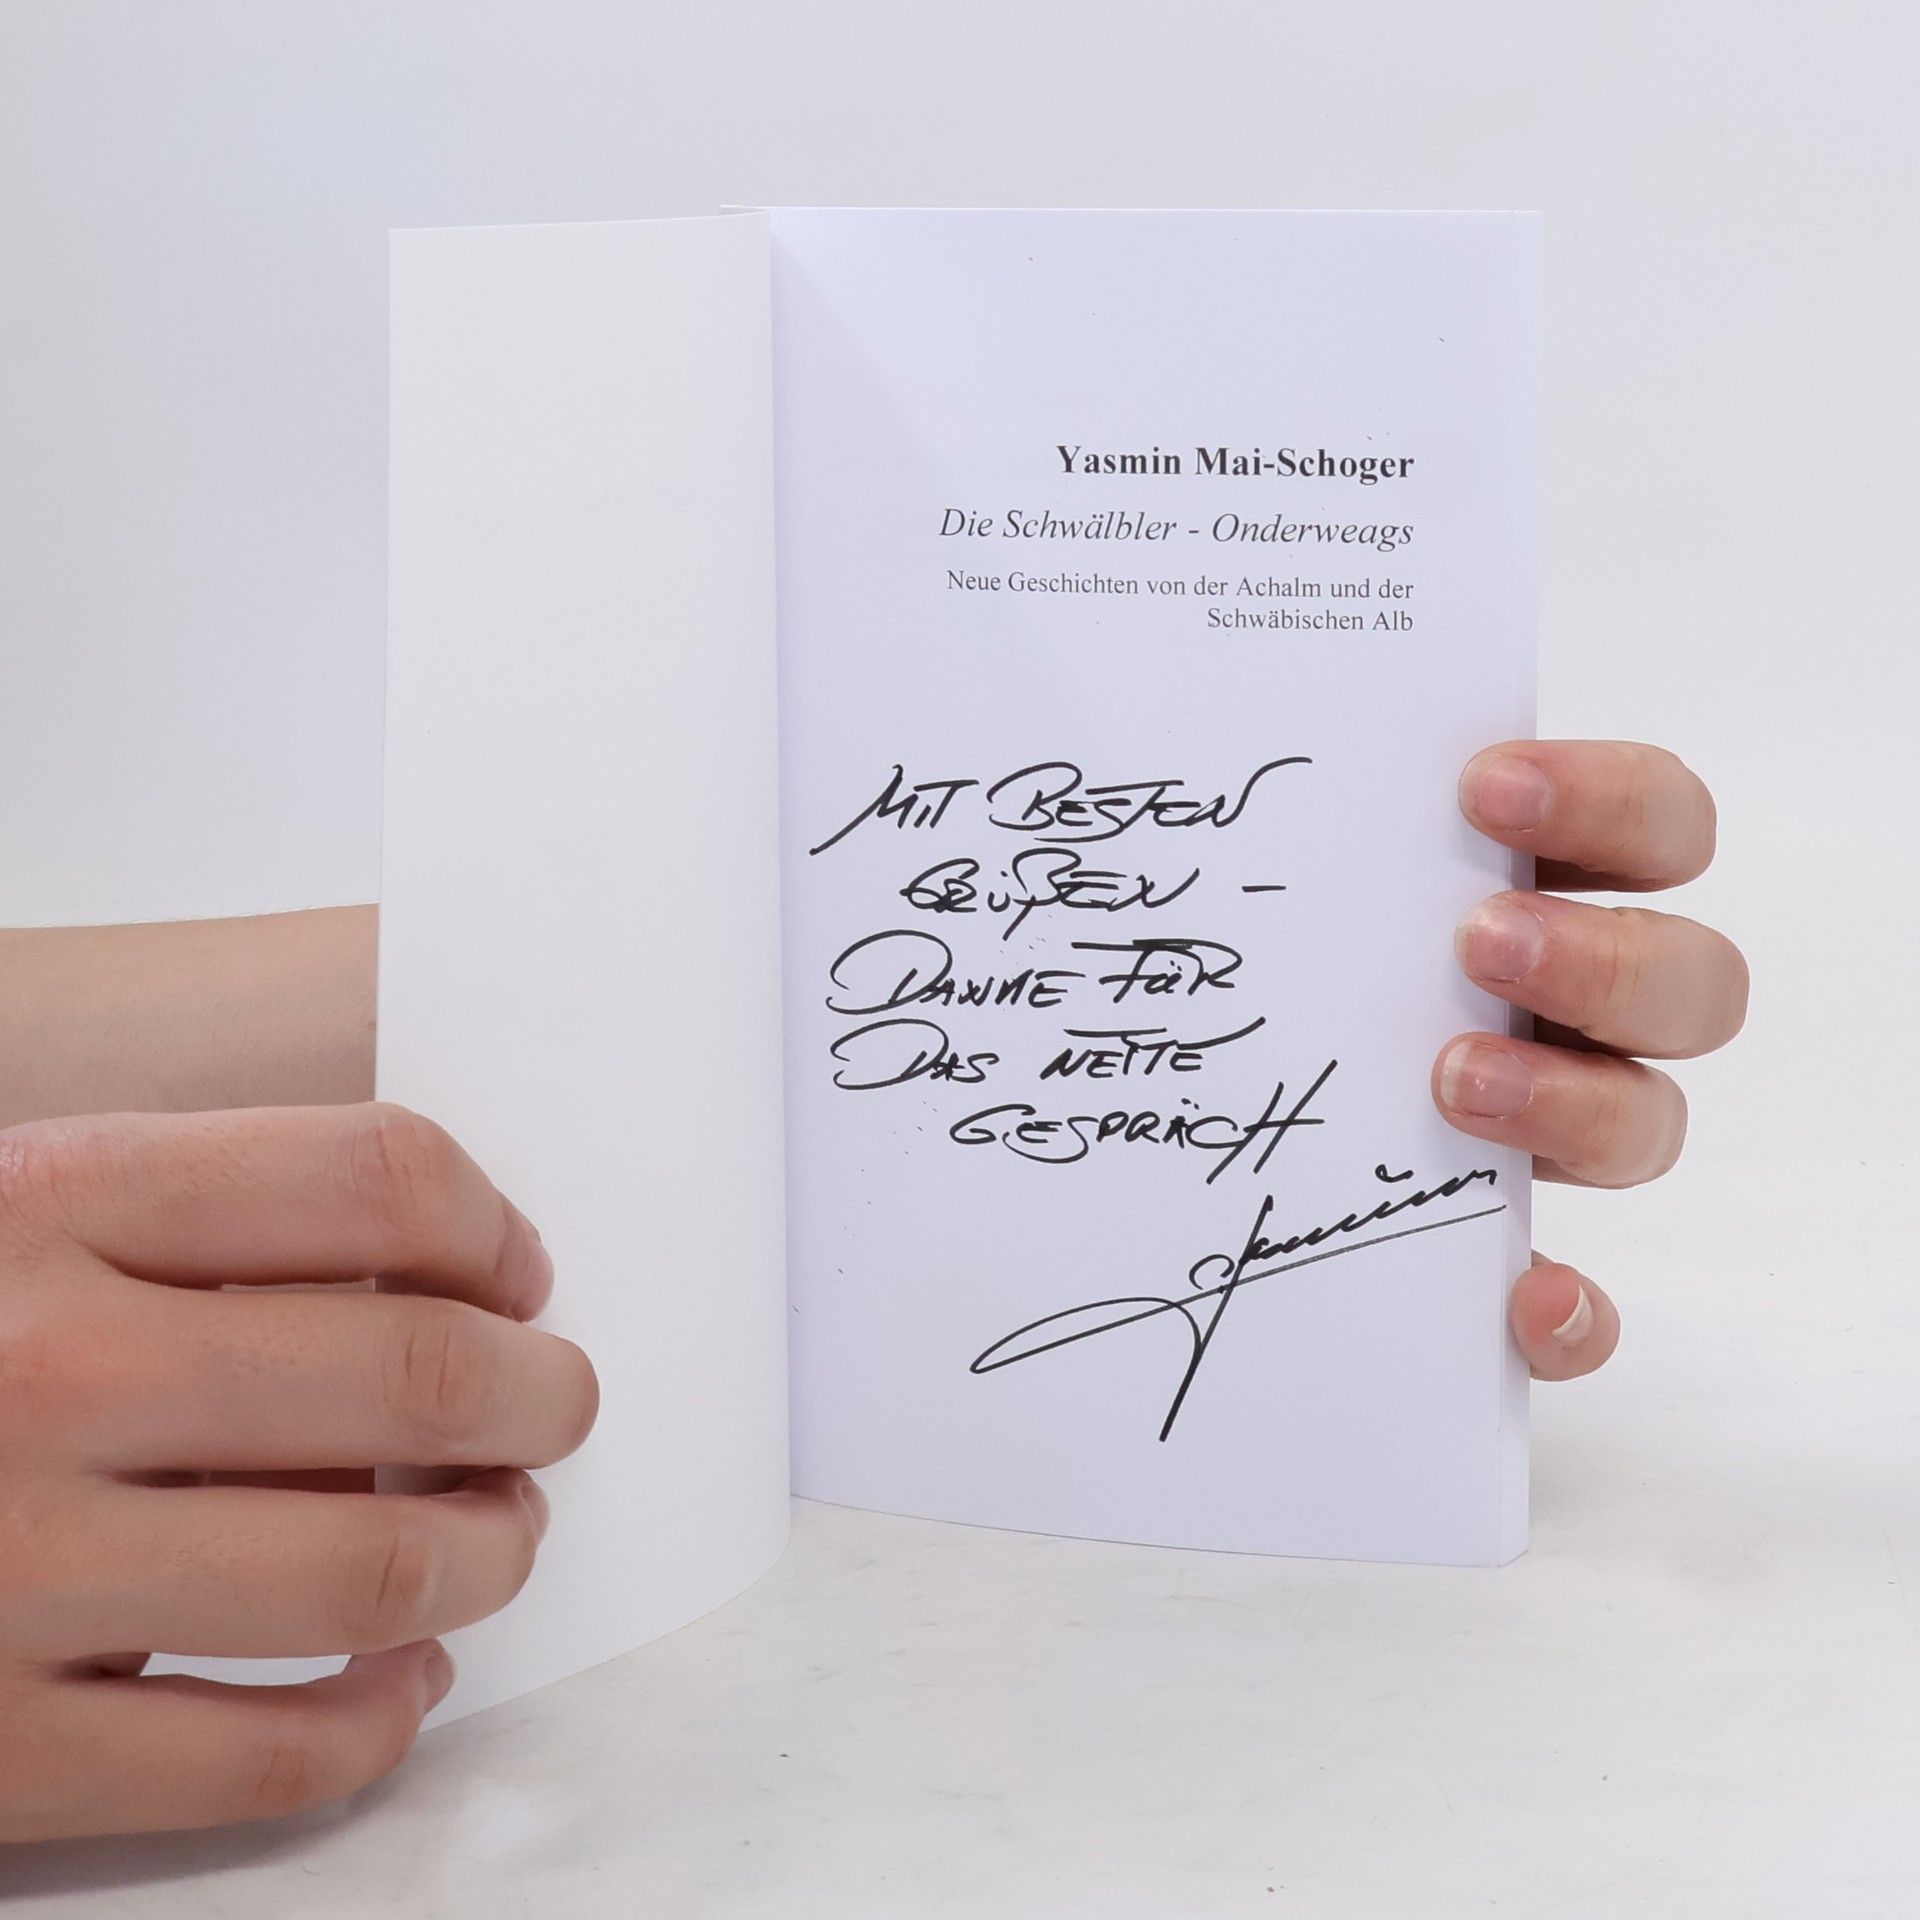 Yasmin Mai-Schoger
Die Schwälbler - Onderweags
Neue Geschichten von der Achalm und der
Schwäbischen Alb
MIT BESTEN
GRÜßEN –
DANKE FÜR
DAS NETTE
GESPRÄCH
Yasmin